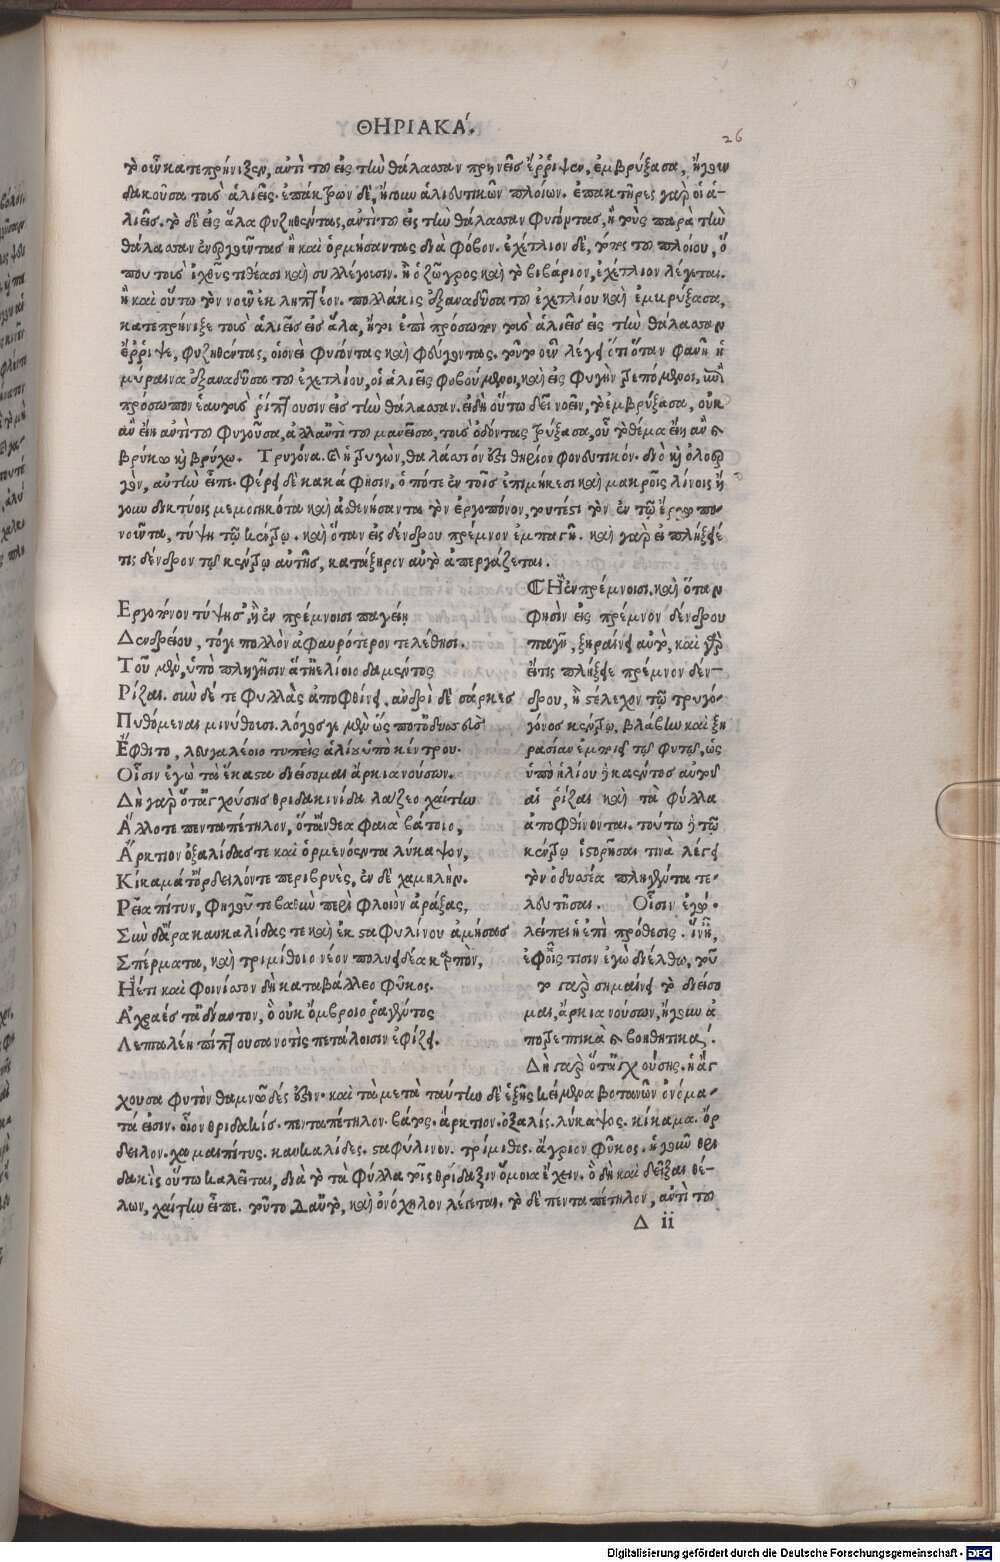 ΘΗΡΙΑΚΑ'.
26
τὸ οὖν κατεπρήνιξεν, ἀντὶ τοῦ εἰς τὴν θάλασσαν πρηνεῖς ἔρριψεν, ἐμβρύξασα, ἤγουν
δακοῦσα τοὺς ἁλιεῖς. ἐπάκτρων δὲ, ἤτοι ἁλιευτικῶν πλοίων. ἐπακτῆρες γὰρ οἱ ἁ-
λιεῖς. τὸ δὲ εἰς ἅλα φυζηθέντας, ἀντὶ τοῦ εἰς τὴν θάλασσαν φυγόντας, ἢ τοὺς παρὰ τὴν
θάλασσαν ἐνοχληθέντας ἢ καὶ ὁρμήσαντας διὰ φόβον. ἐχέτλιον δὲ, τοῦ πλοίου, ὅ
που τοὺς ἰχθῦς τιθέασι καὶ συλλέγουσιν. ἢ ὁ ζωγρος καὶ τὸ βιβάριον, ἐχέτλιον λέγεται.
ἢ καὶ οὕτω τὸν νοῦν ἐκληπτέον. πολλάκις ἐξαναδῦσα τοῦ ἐχετλίου καὶ ἐμβρύξασα,
κατεπρήνιξε τοὺς ἁλιεῖς εἰς ἅλα, ἤτοι ἐπὶ πρόσωπον τοὺς ἁλιεῖς εἰς τὴν θάλασσαν
ἔρριψε, φυζηθέντας, οἱονεὶ φυγόντας καὶ φεύγοντας. τοῦτο οὖν λέγει ὅτι ὅταν φανῇ ἡ
μύραινα ἐξαναδῦσα τοῦ ἐχετλίου, οἱ ἁλιεῖς φοβούμενοι, καὶ εἰς φυγὴν τρεπόμενοι, ἐπὶ
πρόσωπον ἑαυτοὺς ῥίπτουσιν εἰς τὴν θάλασσαν. εἰ δὴ οὕτω δεῖ νοεῖν, τὸ ἐμβρύξασα, οὐκ
ἂν εἴη ἀντὶ τοῦ φυγοῦσα, ἀλλ' ἀντὶ τοῦ μανεῖσα, τοὺς ὀδόντας τρύξασα, οὗ τὸ θέμα εἴη ἂν
βρύκω ἢ βρύχω. Τρυγόνα. Ἡ τρυγὼν, θαλάσσιόν ἐστι θηρίον φονευτικόν. διὸ καὶ ὀλοερ
γὸν, αὐτὴν εἶπε. φέρει δὲ κακά φησιν, ὁπότε ἐν τοῖς ἐπιμήκεσι καὶ μακροῖς λίνοις ἤ
γουν δικτύοις μεμογηκότα καὶ ἀσθενήσαντα τὸν ἐργοπόνον, τουτέστι τὸν ἐν τῷ ἔργῳ πο-
νοῦντα, τύψῃ τῷ κέντρῳ. καὶ ὅταν εἰς δένδρου πρέμνον ἐμπαγῇ. καὶ γὰρ εἰ πλήξειέ
τις δένδρον τῷ κέντρῳ αὐτῆς, κατάξηρον αὐτὸ ἀπεργάζεται.
Ἐργοπόνον τύψῃσ, ἢ ἐν πρέμνοισι παγείη
Δενδρείου, τόγε πολλὸν ἀφαυρότερον τελέθησι.
Τοῦ μὲν, ὑπὸ πληγῇσιν ἅτ' ἠελίοιο δαμέντος
Ρίζαι. σὺν δέ τε φυλλὰς ἀποφθίνει. ἀνδρὶ δὲ σάρκες
Πυθόμεναι μινύθουσι. λόγος γε μὲν ὥς ποτ' ὀδυσσεὺς
Ἔφθιτο, λευγαλέοιο τυπεὶς ἁλίου ὑπὸ κέντρου.
Οἷσιν ἐγὼ τὰ ἕκαστα διείσομαι ἄρκια νούσων.
Δὴ γὰρ ὅτ' ἀγχούσης θριδακινίδα λάζεο χαίτην
Ἄλλοτε πενταπέτηλον, ὅτ' ἄνθεα φαιὰ βάτοιο,
Ἄρκτιον ὀξαλίδας τε καὶ ὁρμενόεντα λύκαψον,
Κίκαμά τ' ὄρδειλόν τε περιβρυὲς, ἐν δὲ χαμηλὴν.
Ρεῖα πίτυν, φηγοῦ τε βαθὺν περὶ φλοιὸν ἀράξας,
Σὺν δ' ἄρα καυκαλίδας τε καὶ ἐκ σταφυλίνου ἀμήσας
Σπέρματα, καὶ τριμίθοιο νέον πολυειδέα καρπὸν,
Ἠ' ἔτι καὶ φοινίσσον δὴ καταβάλλεο φῦκος.
Ἀχραές τ' ἀδίαντον, ὃ οὐκ ὄμβροιο ῥαγέντος
Λεπταλέη πίπτουσα νοτὶς πετάλοισιν ἐφίζει.
Ἢ ἐν πρέμνοισι. καὶ ὅταν
φησὶν εἰς πρέμνον δένδρου
παγῇ, ξηραίνει αὐτὸ, καὶ γὰρ
εἴτις πλήξειε πρέμνον δέν-
δρου, ἢ στέλεχον τῷ τρυγό-
γόνος κέντρῳ, βλάβην καὶ ξη
ρασίαν ἐμποιεῖ τῷ φυτῷ, ὡς
ὑπὸ ἡλίου ἐκκαέντος αὐτοῦ
αἱ ῥίζαι καὶ τὰ φύλλα
ἀποφθίνονται. τούτῳ δὲ τῷ
κέντρῳ ἱστορῆσαί τινα λέγει
τὸν ὀδυσσέα πληγέντα τε-
λευτῆσαι. Οἷσιν ἐγώ.
λείπει ἡ ἐπὶ πρόθεσις. ἵν' ᾖ,
ἐφ' οἷς τισιν ἐγὼ διέλθω, τοῦ
το γὰρ σημαίνει τὸ διείσο
μαι, ἄρκια νούσων, ἤγουν ἀ
ποτρεπτικὰ καὶ βοηθητικά.
Δὴ γὰρ ὅτ' ἀγχούσης. ἡ ἄγ
χουσα φυτὸν θαμνῶδές ἐστιν. καὶ τὰ μετὰ ταύτην δὲ ἑξῆς κείμενα βοτανῶν ὀνόμα-
τά εἰσιν. οἷον θριδακὶς. πενταπέτηλον. βάτος. ἄρκτιον. ὀξαλίς. λύκαψος. κίκαμα. ὄρ
δειλον. χαμαιπίτυς. καυκαλίδες. σταφύλινον. τρίμιθος. ἄγριον φῦκος. ἡ γοῦν θρι
δακὶς οὕτω καλεῖται, διὰ τὸ τὰ φύλλα τοῖς θρίδαξιν ὅμοια ἔχειν. ὃ δὴ καὶ δεῖξαι θέ-
λων, χαίτην εἶπε. τοῦτο δ' αὐτὸ, καὶ ὀνόχηλον λέγεται. τὸ δὲ πενταπέτηλον, ἀντὶ τοῦ
Δ ii
Digitalisierung gefördert durch die Deutsche Forschungsgemeinschaft - DFG